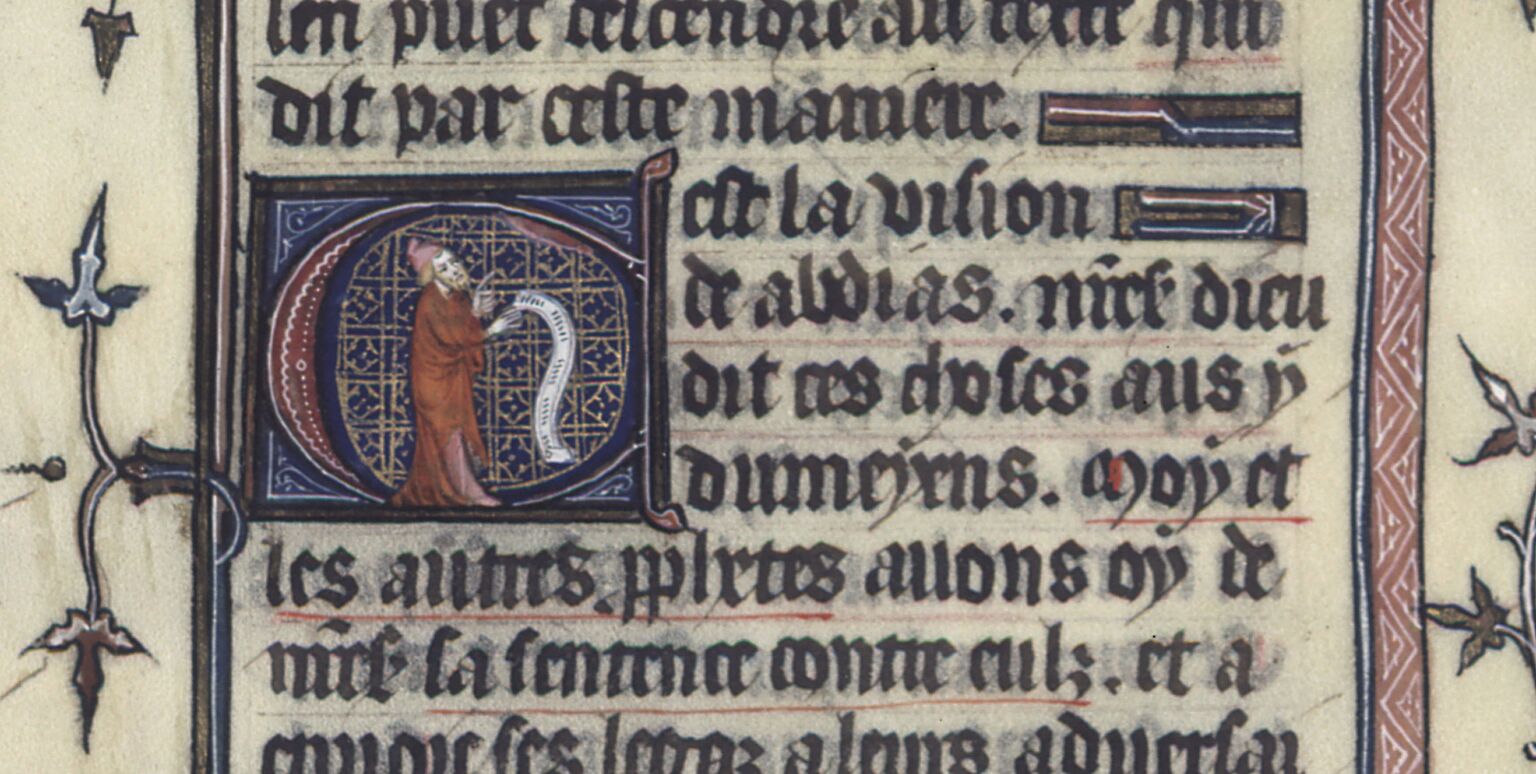 len puet descendre au texte qui
dit par ceste maniere.
Cest la vision
de abdias. nr̄e sʳ dieu
dit ces choses aus y
dumeyens. Moy et
les autres. ꝓphetes auons oy de
nr̄e sʳ sa sentence contre eulz. et a
enuoie ses lettrez a leurs aduersai